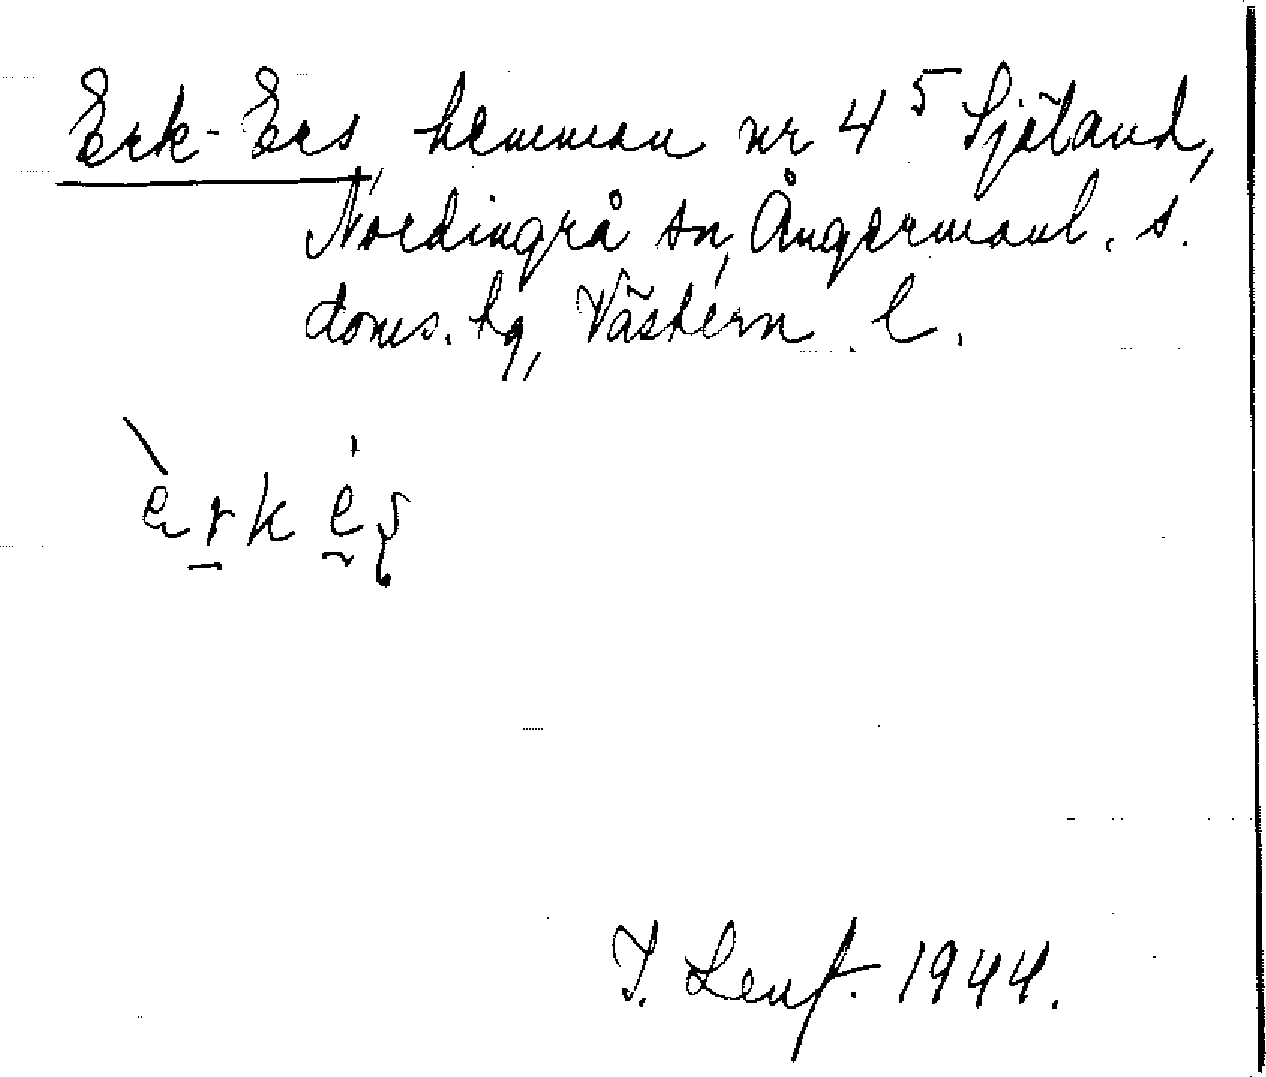 Erk-Ers, hemman nr 4⁵ Sjöland,
Nordingrå sn, Ångermanl. s.
doms. hg, Västern. l.
èrk és
I. Lenf. 1944.